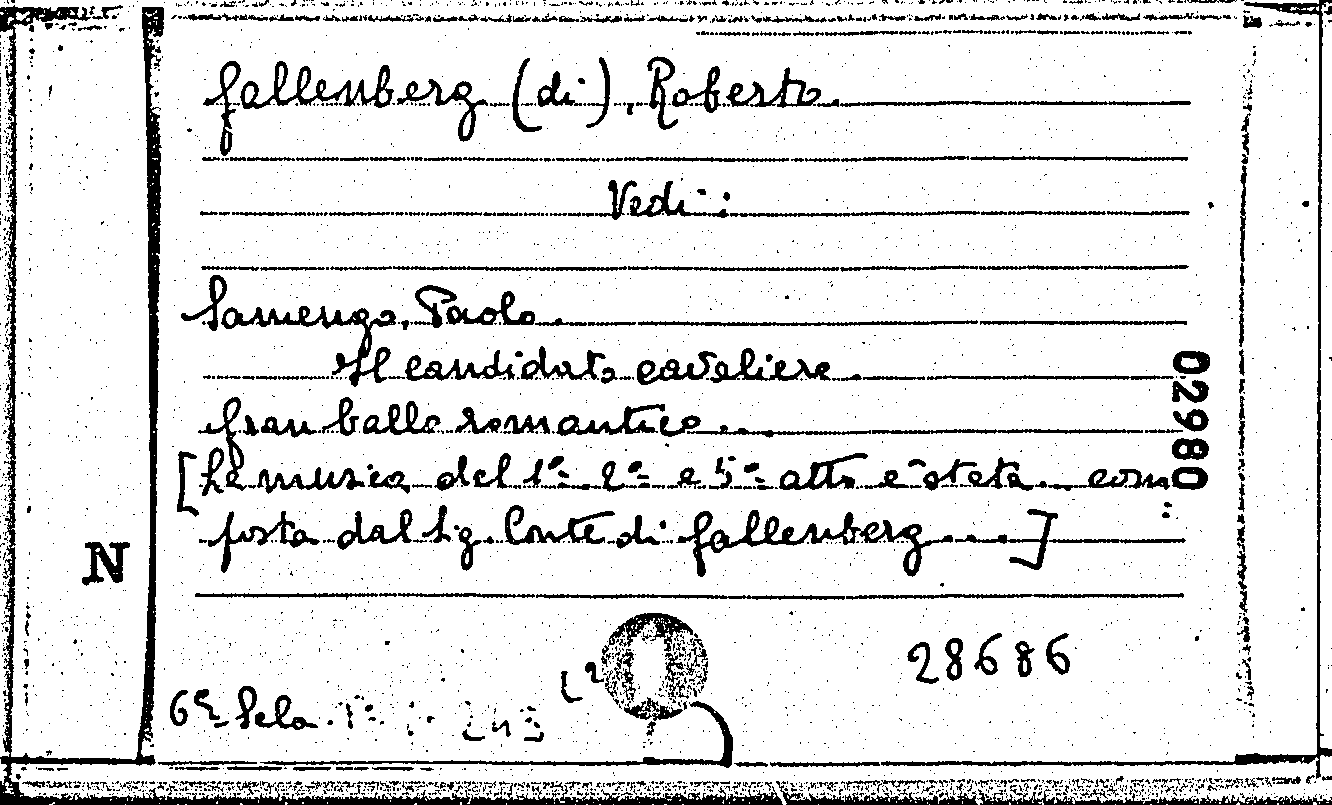 Gallenberg (di), Roberto.
Vedi:
Samengo, Paolo.
Il candidato cavaliere.
Gran ballo romantico...
[La musica del 1º 2º e 5º atto è stata... com:
posta dal Sig. Conte di Gallenberg....]
02980
N
28686
6ª Sala.